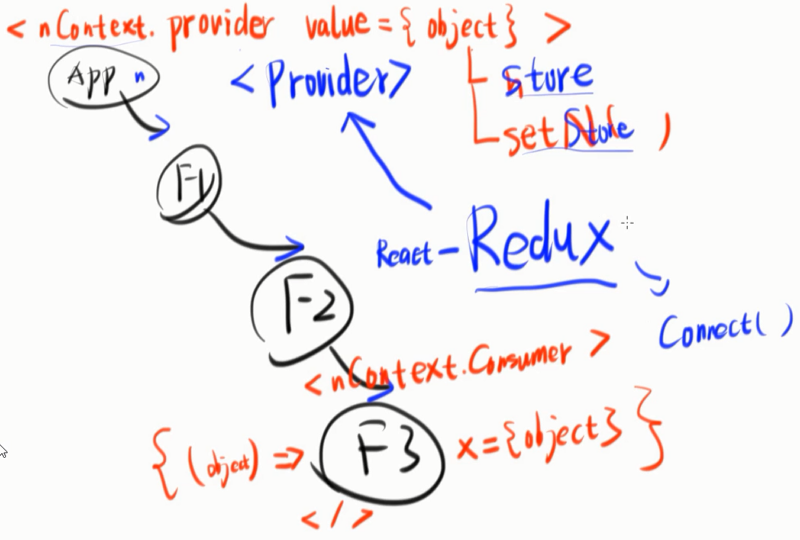 < nContext. provider value={ object} >
App n
<Provider>
store
setStore )
F1
React-Redux
F2
Connect( )
<nContext.Consumer >
{ (object) => F3 x={object} }
</>